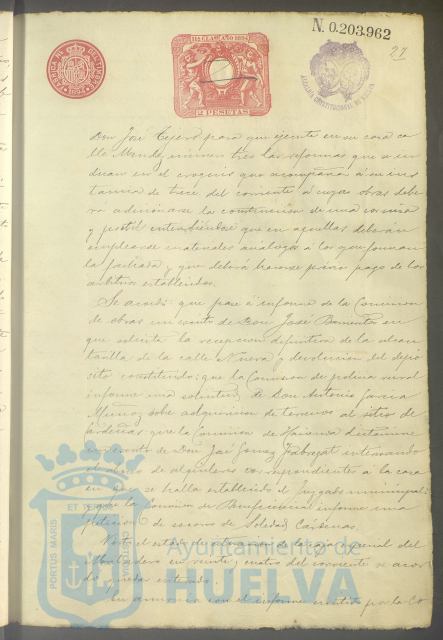 N. 0.203.962
27
11ª CLASE AÑO 1894
2 PESETAS
1894
ALCALDIA CONSTITUCIONAL DE HUELVA
Don José Tejero para que ejecute en su casa ca
lle Mendez número tres las reformas que se in
dican en el croquis que acompaña á su ins
tancia de trece del corriente á cuyas obras debe
rá adicionarse la construcción de una cornisa
y pretil entendiéndose que en aquellas deberán
emplearse materiales análogos á los que forman
la fachada y que deberá hacerse previo pago de los
arbitrios establecidos.
Se acordó: que pase á informe de la Comision
de obras un escrito de Don José Barrientos en
que solicita la recepcion definitiva de la alcan
tarilla de la calle Nueva y devolucion del depó
sito constituido: que la Comision de policia rural
informe una solicitud de Don Antonio Garcia
Muñoz sobre adquisicion de terrenos al sitio de
Cardeñas que la Comision de Hacienda dictamine
un escrito de Don José Gomez Fabregat interesando
el abono de alquileres correspondientes á la casa
en que se halla establecido el Juzgado municipal:
y que la Comision de Beneficencia informe una
peticion de socorro de Soledad Cárdenas.
Visto el estado de situacion de la caja especial del
Matadero en veinte y cuatro del corriente se acor
dó quedar enterado.
En armonia con el informe emitido por la Co
PORTUS MARIS
ET TERRÆ
CUSTODIA
Ayuntamiento de
HUELVA